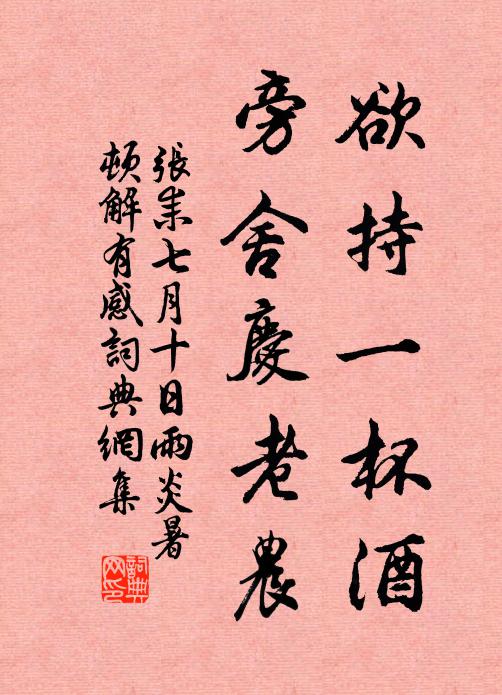 欲持一杯酒
旁舍慶老農
張耒七月十日雨炎暑
頓解有感詞典網集
詞典
网印